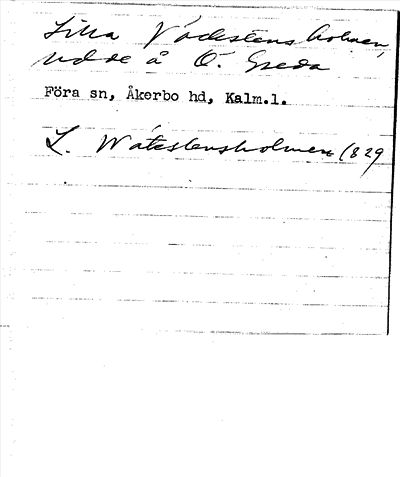 Lilla Vadstensholmen,
udde å Ö. Greda
Föra sn, Åkerbo hd, Kalm.l.
L. Watestensholmen 1829